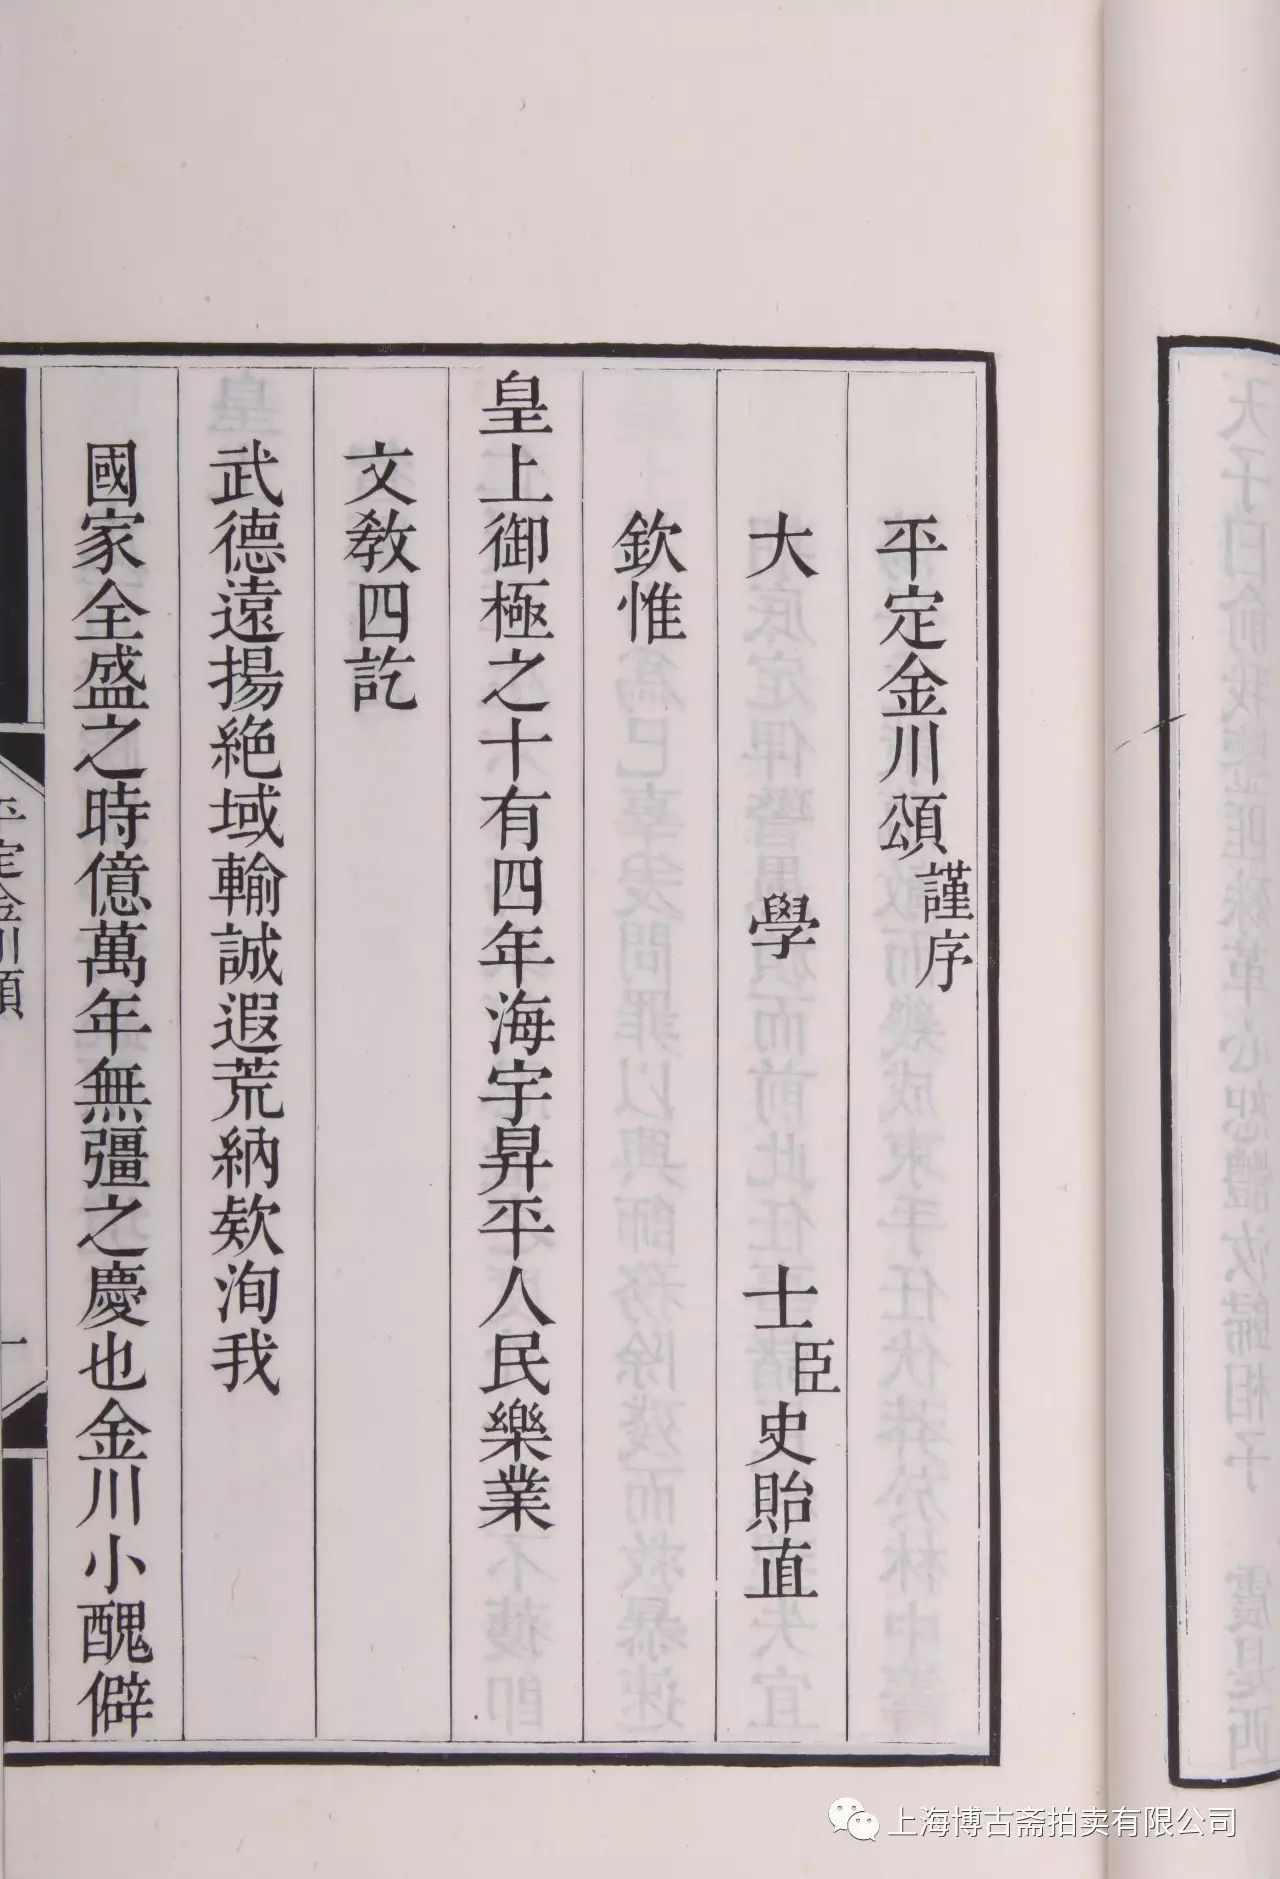 平定金川頌謹序
大學士臣史貽直
欽惟
皇上御極之十有四年海宇昇平人民樂業
文教四訖
武德遠揚絶域輸誠遐荒納欵洵我
國家全盛之時億萬年無彊之慶也金川小醜僻
平定金川頌
一
上海博古斋拍卖有限公司